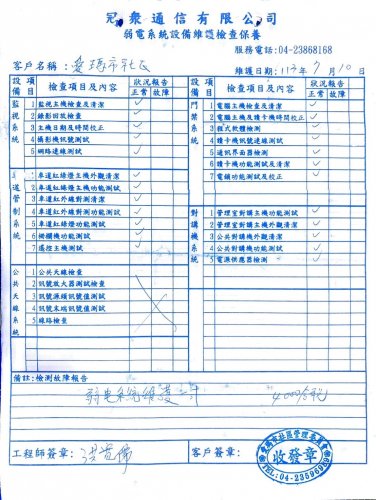 冠衆通信有限公司
弱電系統設備維護檢查保養
服務電話:04-23868168
客戶名稱: 愛瑪市社區
維護日期:113年7月10日
設備 項目 檢查項目及內容 狀況報告 正常 故障
監視系統
1 監視主機檢查及清潔 ✓
2 錄影回放檢查 ✓
3 主機日期及時間校正 ✓
4 攝影機訊號測試 ✓
5 網路連線測試 ✓
車道管制系統
1 車道紅綠燈主機外觀清潔 ✓
2 車道紅綠燈主機功能測試 ✓
3 車道紅外線對測清潔 ✓
4 車道紅外線對測功能測試 ✓
5 車道紅綠燈功能測試 ✓
6 柵欄機功能測試 ✓
7 遙控主機測試 ✓
公共天線系統
1 公共天線檢查
2 訊號放大器測試檢查
3 訊號源頭訊號值測試
4 訊號末端訊號值測試
5 線路檢查
設備 項目 檢查項目及內容 狀況報告 正常 故障
門禁系統
1 電腦主機檢查及清潔 ✓
2 電腦主機及讀卡機時間校正 ✓
3 程式軟體檢測 ✓
4 讀卡機訊號連線測試 ✓
5 通訊界面器檢測 ✓
6 讀卡機功能測試及清潔 ✓
7 電鎖功能測試及清潔 ✓
對講機系統
1 管理室對講主機功能測試 ✓
2 管理室對講主機外觀清潔 ✓
3 公共對講機外觀清潔 ✓
4 公共對講機功能測試 ✓
5 電源供應器檢測 ✓
備註:檢測故障報告
弱电系統維護 4,000含稅
工程師簽章:
客戶簽章:
愛瑪市社區管理委員會
收發章
TEL:04-23696968